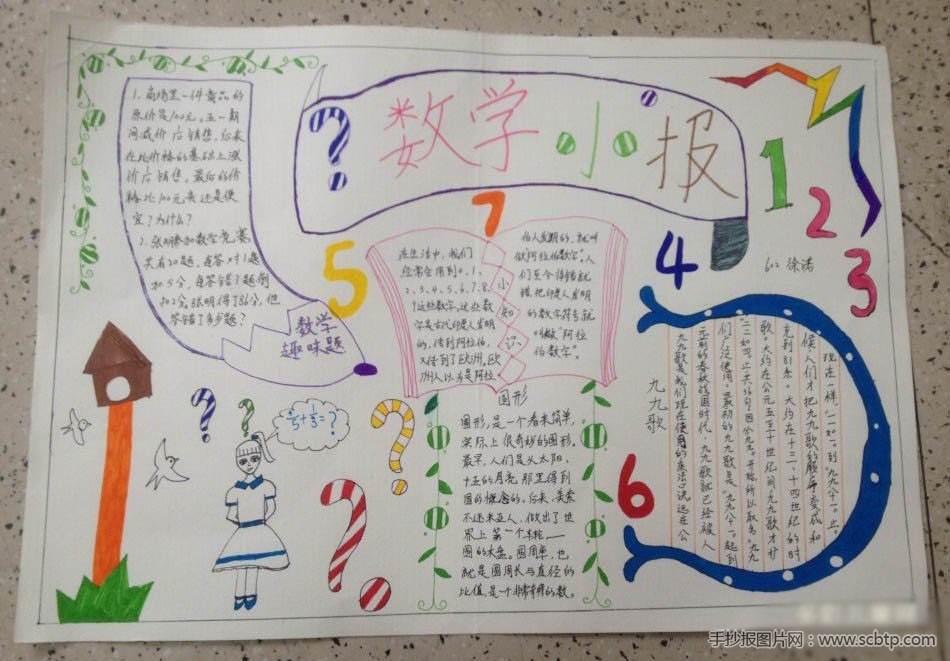 数学小报
1. 商场里一件商品的
原价是100元。五一期
间减价后销售，后来
在此价格的基础上涨
价后销售，最后的价
格比100元贵还是便
宜？为什么？
2. 张明参加数学竞赛，
共有20题，每答对1题
加5分，每答错1题倒
扣2分。张明得了86分，他
答错了多少题？
数学
趣味题
?
5
7
4
1
2
3
6
602 徐诺
小知识
在生活中，我们
经常会用到0、1、
2、3、4、5、6、7、8、
9这些数字。这些数
字是古代印度人发明
的，传到阿拉伯，
又传到了欧洲，欧
洲人以为是阿拉
伯人发明的，就叫
做阿拉伯数字。人
们至今将错就
错，把印度人发明
的数字符号就
叫做"阿拉
伯数字"。
圆形
圆形，是一个看来简单，
实际上很奇妙的圆形。
最早，人们是从太阳，
十五的月亮那里得到
圆的概念的，后来，美索
不达米亚人，做出了世
界上第一个轮——
圆的木盘。圆周率，也
就是圆周长与直径的
比值，是一个非常奇妙的数。
九九歌
九九歌是我们现在使用的乘法口诀远在公
元前的春秋战国时代，九九歌就已经被人
们广泛使用。最初的九九歌是"九九八十一"起到
"二二如四"止，共36句。因九九"开始，所以取名九九
歌。大约在公元五至十世纪间九九歌才扩
充到81条。大约在十三、十四世纪的时
候人们才把九九歌的顺序变成和
现在一样，"一一如一"到"九九八十一"止。
? ? ? ?
手抄报图片网：www.scbtp.com